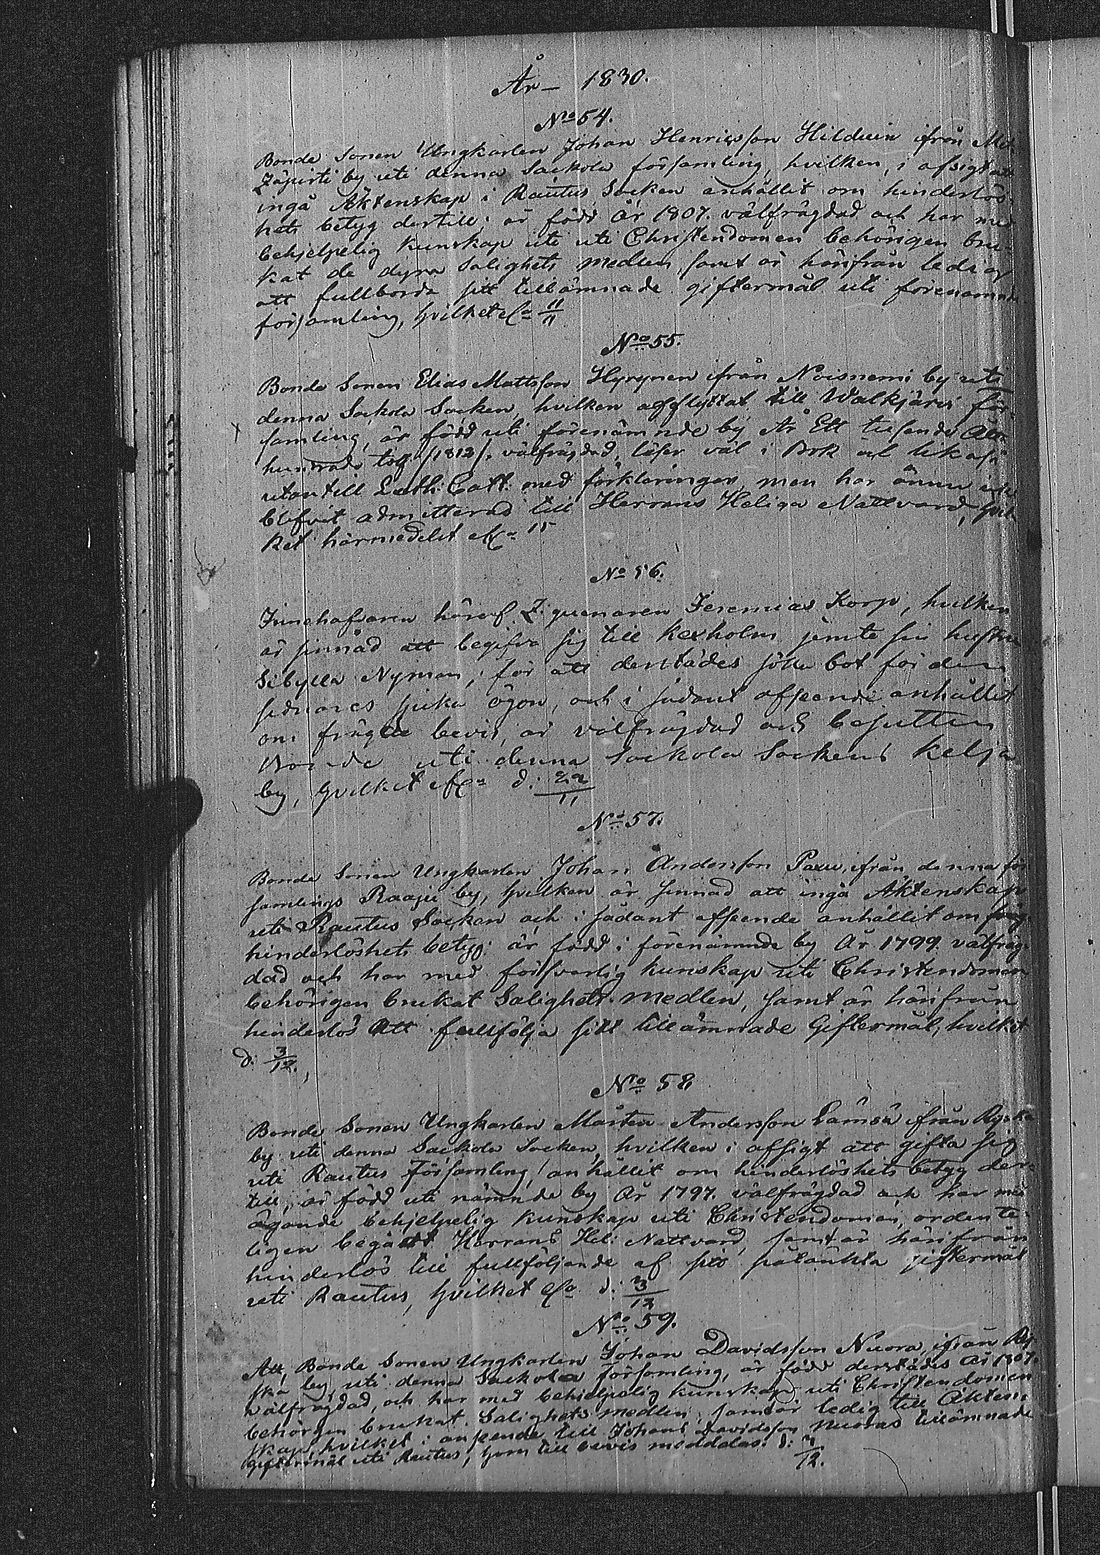 År 1830.
No 54.
Bonde Sonen Ungkarlen Johan Henricsson Hilduin ifrån
by uti denna Sackola församling, hvilken, i afsigt att
ingå Äktenskap i Rautus Socken anhållit om hinderlös-
hets betyg dertill: är född År 1807. välfrägdad och har med
behjelpelig kunskap uti uti Christendomen behörigen bru-
kat de dyra Salighets medlen, samt är härifrån ledig
att fullborda sitt tillämnade giftermål uti förenämnde
församling, hvilket &c 11/11
No 55.
Bonde Sonen Elias Mattsson Hyrynen ifrån Noisnemi by uti
denna Sackola Socken, hvilken afflyttat till Walkjärvi för-
samling, är född uti förenämnde by År Ett tusende Otta
hundrade tolf /1812/. välfrägdad, läser väl i Bok och likaså
utantill Luth: Cat: med förklaringen, men har ännu ick
blifvit admitterad till Herrans Heliga Nattvard, hvil-
ket härmedelst &c 15
No 56.
Innehafvaren häraf Ziguenaren Jeremias Korp, hvilken
är sinnad att begifva sig till Kexholm jemte sin hustru
Sibylla Nyman, för att derstädes söka bot för den
sednares sjuka ögon, och i sådant afseende anhållit
om frägde bevis, är välfrägdad och besutten
Bonde uti denna Sackola Sockens Kelja
by, hvilket &c d: 22/11
No 57.
Bonde Sonen Ungkarlen Johan Andersson Paxu, ifrån denna för
samlings Raaju by, hvilken är sinnad att ingå Äktenskap
uti Rautus Socken och i sådant afseende anhållit om fräg
hinderlöshets betyg: är född i förenämnde by År 1799. välfräg-
dad och har med försvarlig kunskap uti Christendomen
behörigen brukat Salighets medlen, samt är härifrån
hinderlös att fullfölja sitt tillämnade Giftermål, hvilket
d. 3/12.
No 58
Bonde Sonen Ungkarlen Mårten Andersson Lämsä ifrån
by uti denna Sackola Socken, hvilken i afsigt att gifta sig
uti Rautus Församling, anhållit om hinderlöshets betyg der-
till, är född uti nämnde by År 1797. välfrägdad och har med
ägande behjelpelig kunskap uti Christendomen, ordente-
ligen begådt Herrans Hel: Nattvard, samt är härifrån
hinderlös till fullföljande af sitt påtänkta giftermål
uti Rautus, hvilket &c d: 3/12
No 59.
Att, Bonde Sonen Ungkarlen Johan Davidsson Nuora, ifrån Ry-
ska by, uti denna Sackola Församling, är född derstädes År 1807.
Välfrägdad, och har med behjelpelig kunskap uti Christendomen
behörigen brukat Salighets medlen, samt är ledig till Äkten-
skap, hvilket i anseende till Johans Davidsson Nuoras tillämnade
giftermål uti Rautus, som till bevis meddelas. d: 3/12.